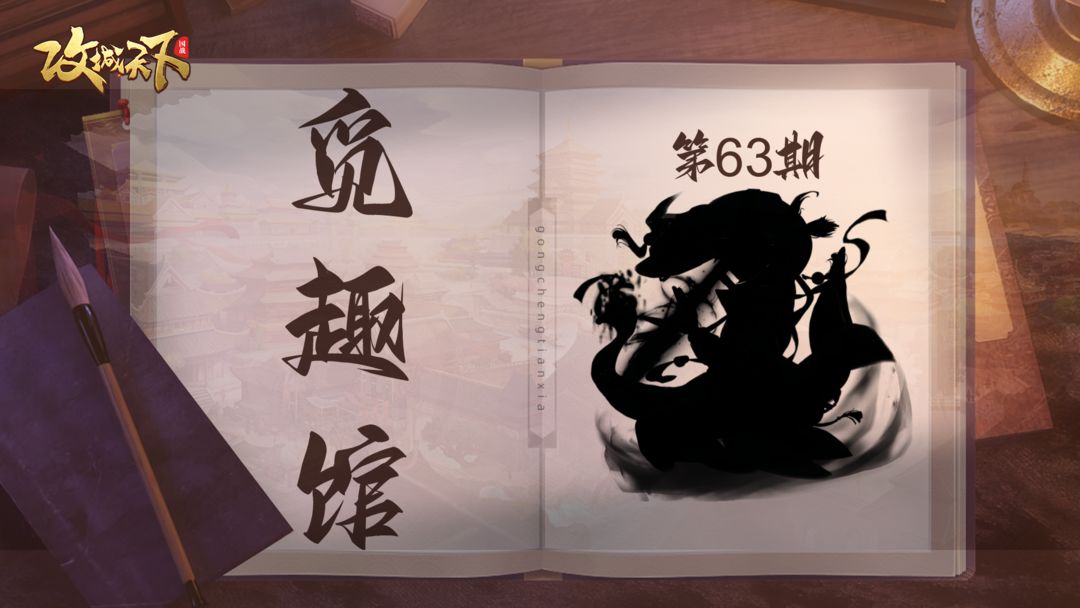 攻城天下
国战
觅趣馆
gongchengtianxia
第63期